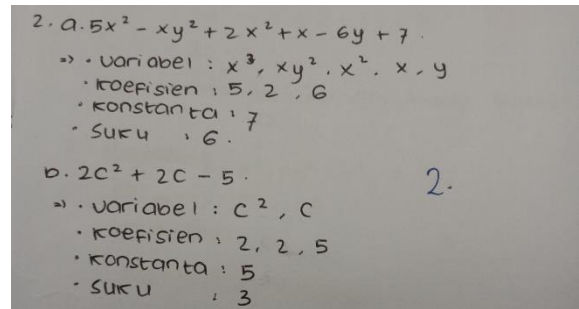 2. a. 5x² - xy² + 2x² + x - 6y + 7.
=> • variabel : x³, xy², x², x, y
• koefisien : 5, 2, 6
• konstanta : 7
• suku : 6.
b. 2c² + 2c - 5.
=> • variabel : c², c
• koefisien : 2, 2, 5
• konstanta : 5
• suku : 3
2.